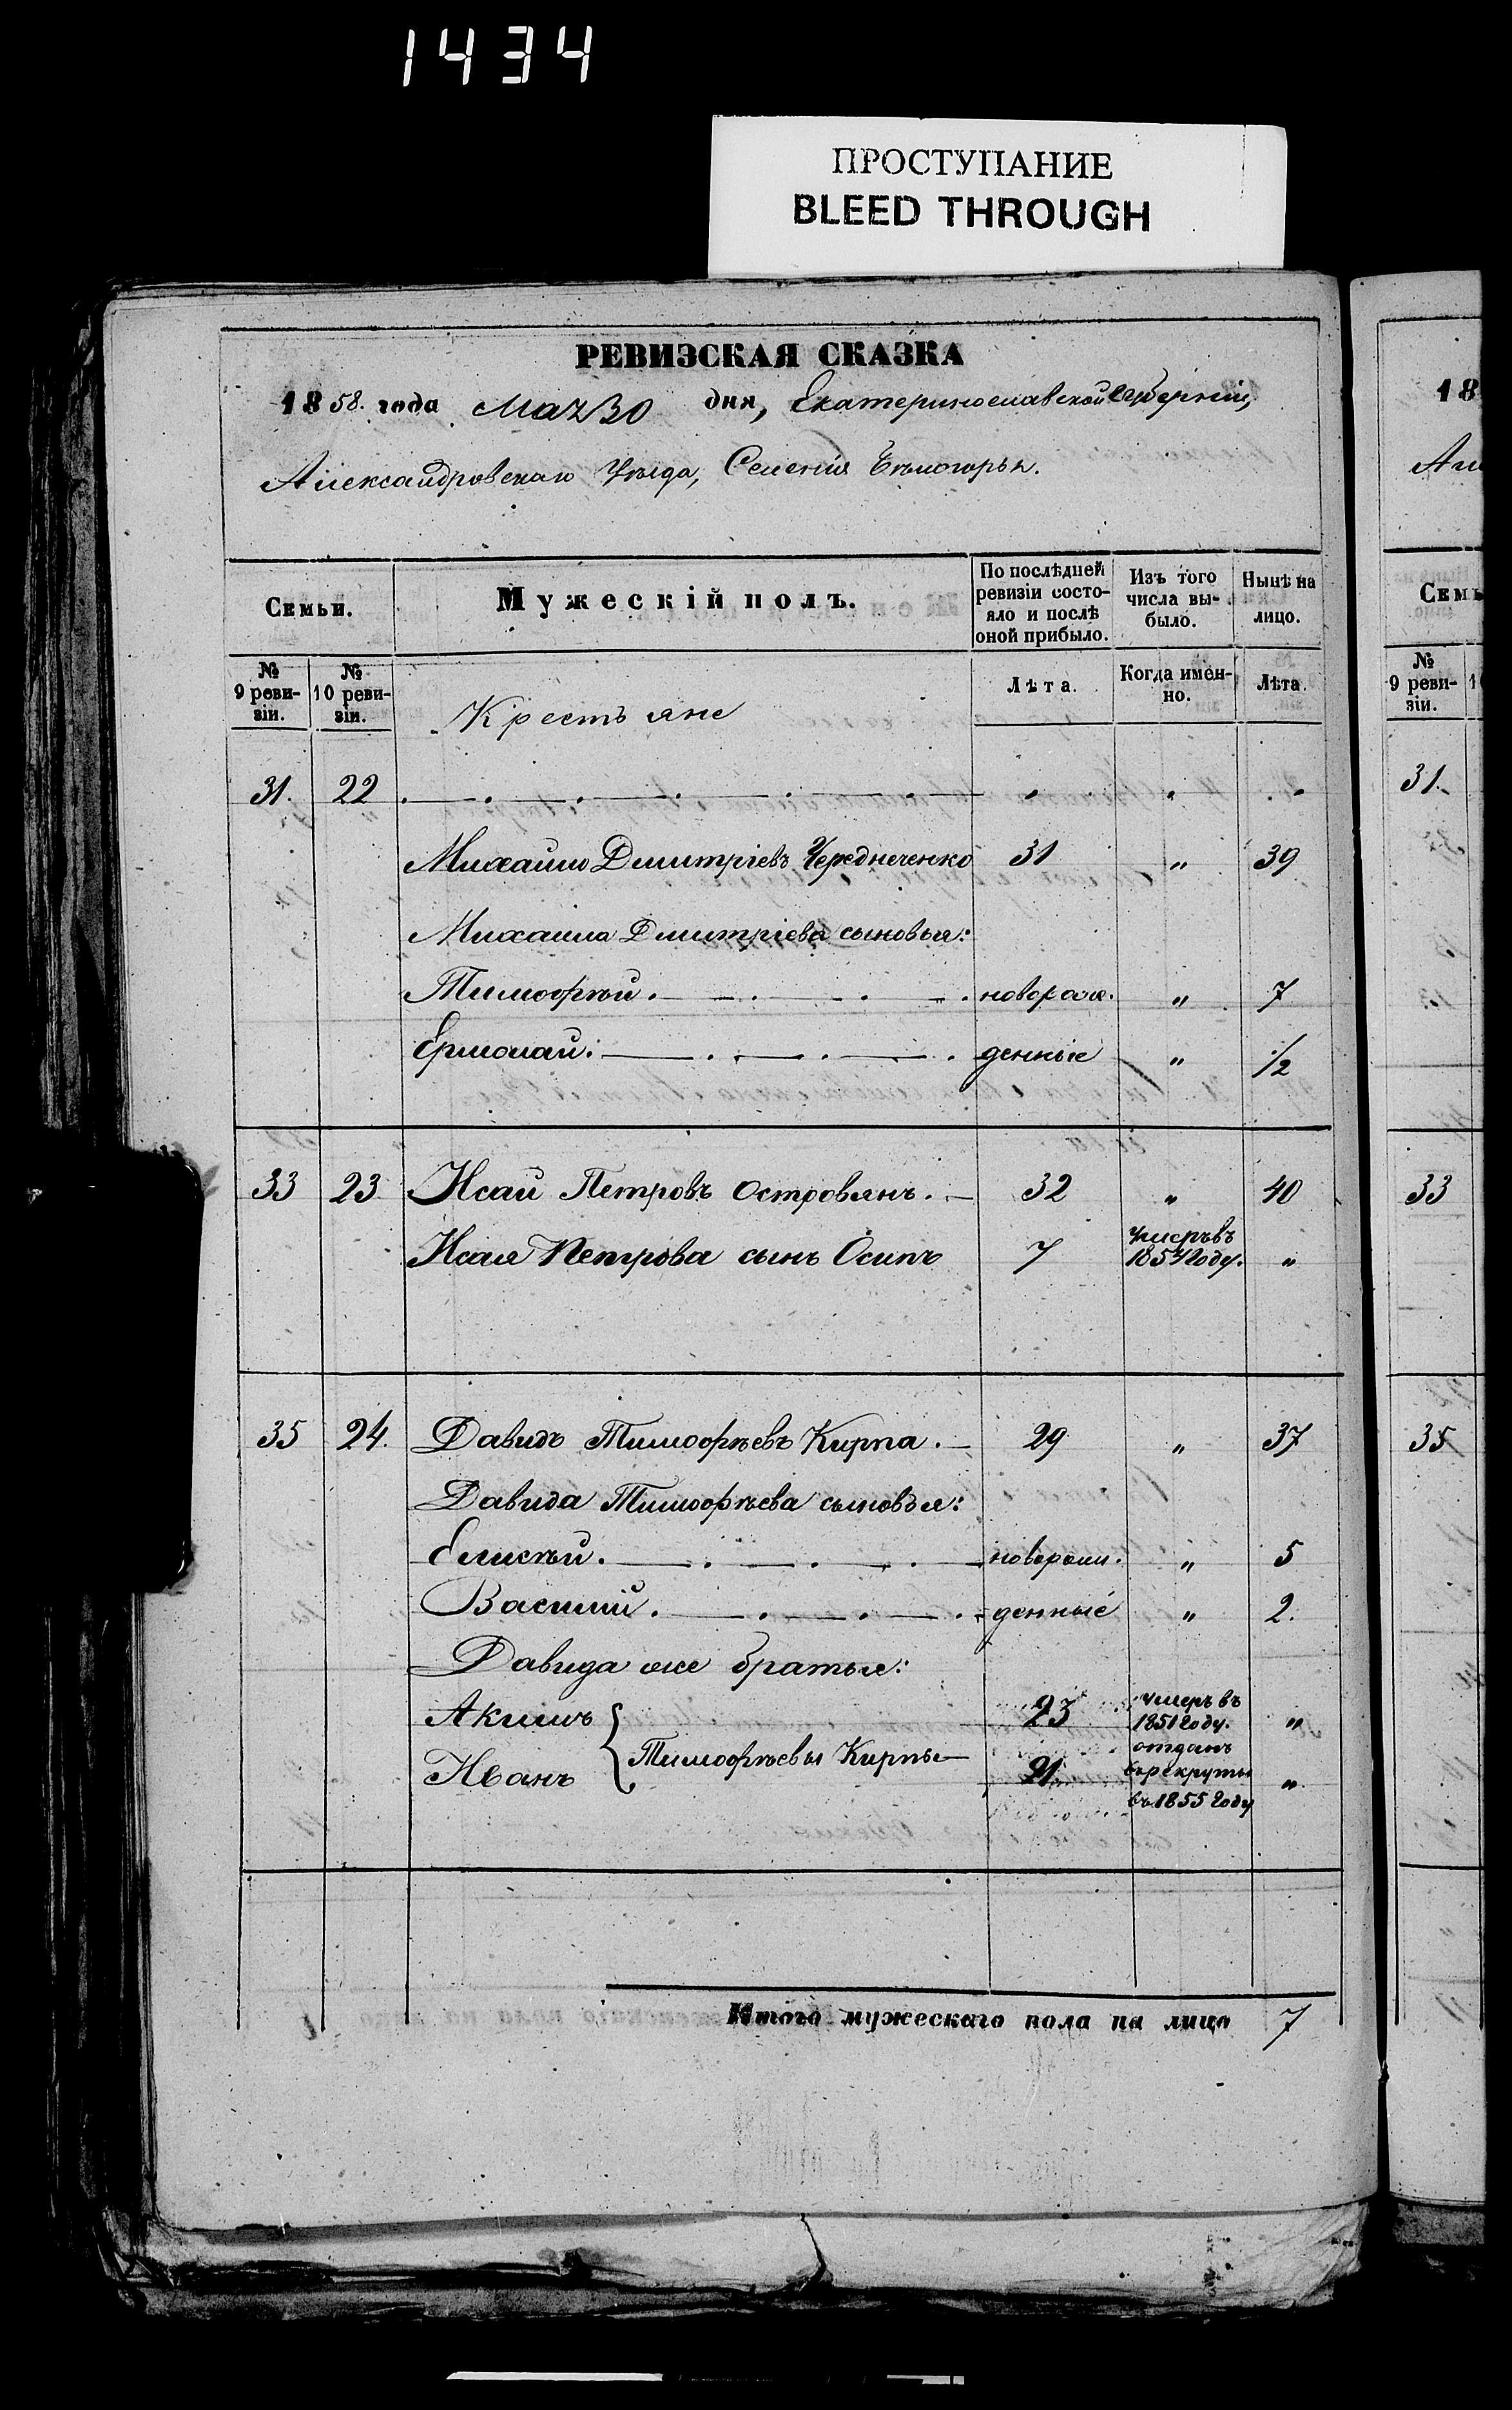 1434
ПРОСТУПАНИЕ
BLEED THROUGH
РЕВИЗСКАЯ СКАЗКА
1858. года Мая 30 дня, Екатеринославской Губерніи,
Александровскаго Уѣзда, Селенія Бѣлогорья.
Семьи.
Мужескій полъ.
По послѣдней ревизіи состояло и послѣ оной прибыло.
Изъ того числа выбыло.
Нынѣ на лицо.
№ 9 ревизіи.
№ 10 ревизіи.
Крестьяне
Лѣта.
Когда именно.
Лѣта.
31. 22 " " "
Михайло Дмитріевъ Чередниченко 31 " 39
Михаила Дмитріева сыновья:
Тимофѣй. новорож. " 7
Ермолай. денные " 1/2
33 23 Исай Петровъ Островянъ. 32 " 40
Исая Петрова сынъ Осипъ 7 умеръ въ 1854 году. "
35 24. Давидъ Тимофѣевъ Кирпа. 29 " 37
Давида Тимофѣева сыновья:
Елисѣй. новорож. " 5
Василий. денные " 2.
Давида же братья:
Акимъ 23 умеръ въ 1851 году. "
Тимофѣевы Кирпы
Иванъ 21 отданъ въ рекруты въ 1855 году "
Итого мужескаго пола на лицо 7
18
Але
Семь
№ 9 ревизіи.
31.
33
35